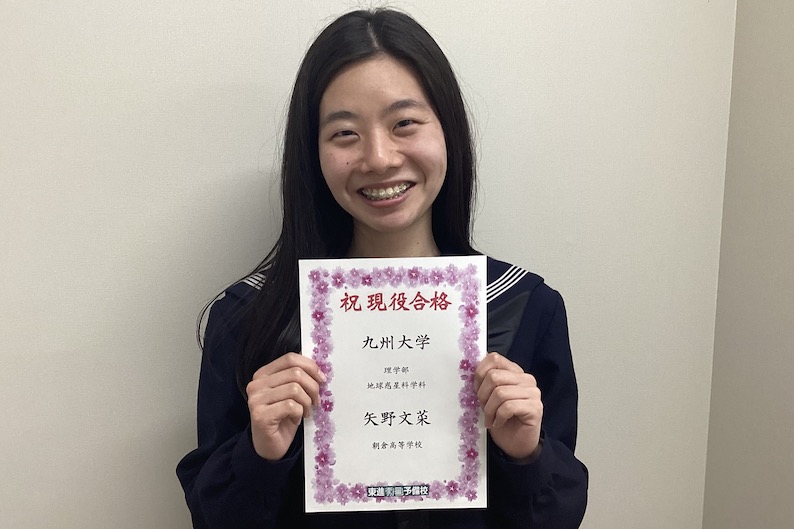 祝 現役合格
九州大学
理学部
地球惑星科学科
矢野文菜
朝倉高等学校
東進衛星予備校